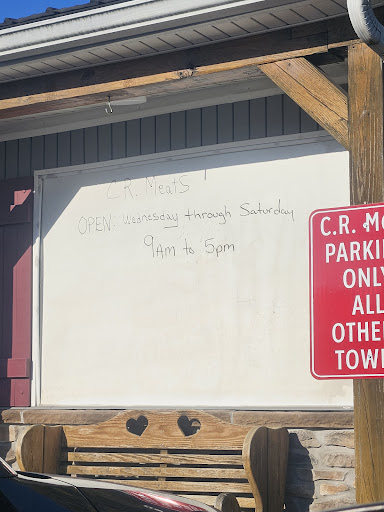 C.R. Meats
OPEN: Wednesday through Saturday
9Am to 5pm
C.R. M
PARKI
ONLY
ALL
OTHE
TOW